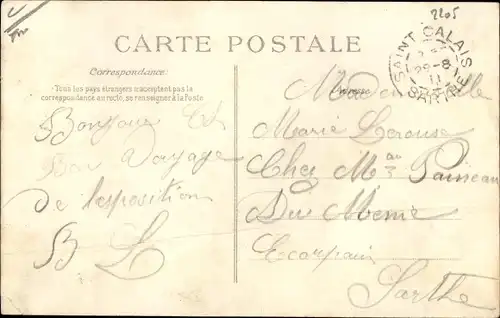 2205
CARTE POSTALE
SAINT CALAIS
29-8
11
SARTHE
Correspondance
Tous les pays étrangers n'acceptent pas la
correspondance au recto, se renseigner à la Poste
Adresse
Bonjour Et
Bon Voyage
de lesposition
B L
Mademoiselle
Marie Lerouse
Chez Mau Paineau
Du Meme
Ecorpain
Sarthe